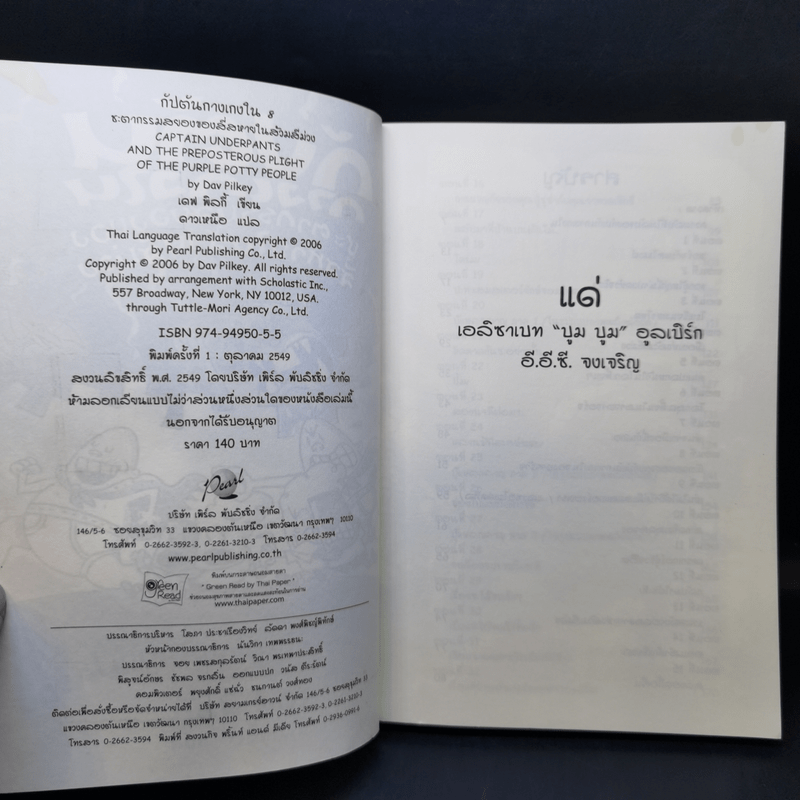 กัปตันกางเกงใน 8
ชะตากรรมสยองของสี่สหายในส้วมสีม่วง
CAPTAIN UNDERPANTS
AND THE PREPOSTEROUS PLIGHT
OF THE PURPLE POTTY PEOPLE
by Dav Pilkey
เดฟ พิลกี้ เขียน
ดาวเหนือ แปล
Thai Language Translation copyright © 2006
by Pearl Publishing Co., Ltd.
Copyright © 2006 by Dav Pilkey. All rights reserved.
Published by arrangement with Scholastic Inc.,
557 Broadway, New York, NY 10012, USA.
through Tuttle-Mori Agency Co., Ltd.
ISBN 974-94950-5-5
พิมพ์ครั้งที่ 1 : ตุลาคม 2549
สงวนลิขสิทธิ์ พ.ศ. 2549 โดยบริษัท เพิร์ล พับลิชชิ่ง จำกัด
ห้ามลอกเลียนแบบไม่ว่าส่วนหนึ่งส่วนใดของหนังสือเล่มนี้
นอกจากได้รับอนุญาต
ราคา 140 บาท
Pearl
บริษัท เพิร์ล พับลิชชิ่ง จำกัด
146/5-6 ซอยสุขุมวิท 33 แขวงคลองตันเหนือ เขตวัฒนา กรุงเทพฯ 10110
โทรศัพท์ 0-2662-3592-3, 0-2261-3210-3 โทรสาร 0-2662-3594
www.pearlpublishing.co.th
Green Read
พิมพ์บนกระดาษถนอมสายตา
" Green Read by Thai Paper "
www.thaipaper.com
บรรณาธิการบริหาร โสภา ประชาเรืองวิทย์ ลัดดา พงศ์พิชญ์พิทักษ์
หัวหน้ากองบรรณาธิการ นันวิภา เทพพรรธนะ
บรรณาธิการ
พิสูจน์อักษร ออกแบบปก
คอมพิวเตอร์ พยุงศักดิ์
ติดต่อเพื่อสั่งซื้อหรือจัดจำหน่ายได้ที่ บริษัท สยามเกรย์ฮาวน์ จำกัด 146/5-6 ซอยสุขุมวิท 33
แขวงคลองตันเหนือ เขตวัฒนา กรุงเทพฯ 10110 โทรศัพท์ 0-2662-3592-3, 0-2261-3210-3
โทรสาร 0-2662-3594 พิมพ์ที่ สงวนกิจ พริ้นท์ แอนด์ มีเดีย โทรศัพท์
แด่
เอลิซาเบท "บูม บูม" อูลเบิร์ก
อี.อี.ซี. จงเจริญ